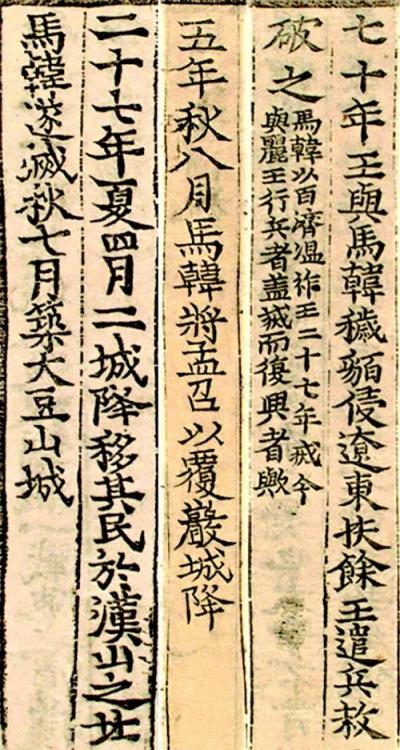 七十年王與馬韓穢貊侵遼東扶餘王遣兵救
破之
馬韓以百濟温祚王二十七年滅今
與麗王行兵者盖滅而復興者歟
五年秋八月馬韓將孟召以覆巖城降
二十七年夏四月二城降移其民於漢山之北
馬韓遂滅秋七月築大豆山城